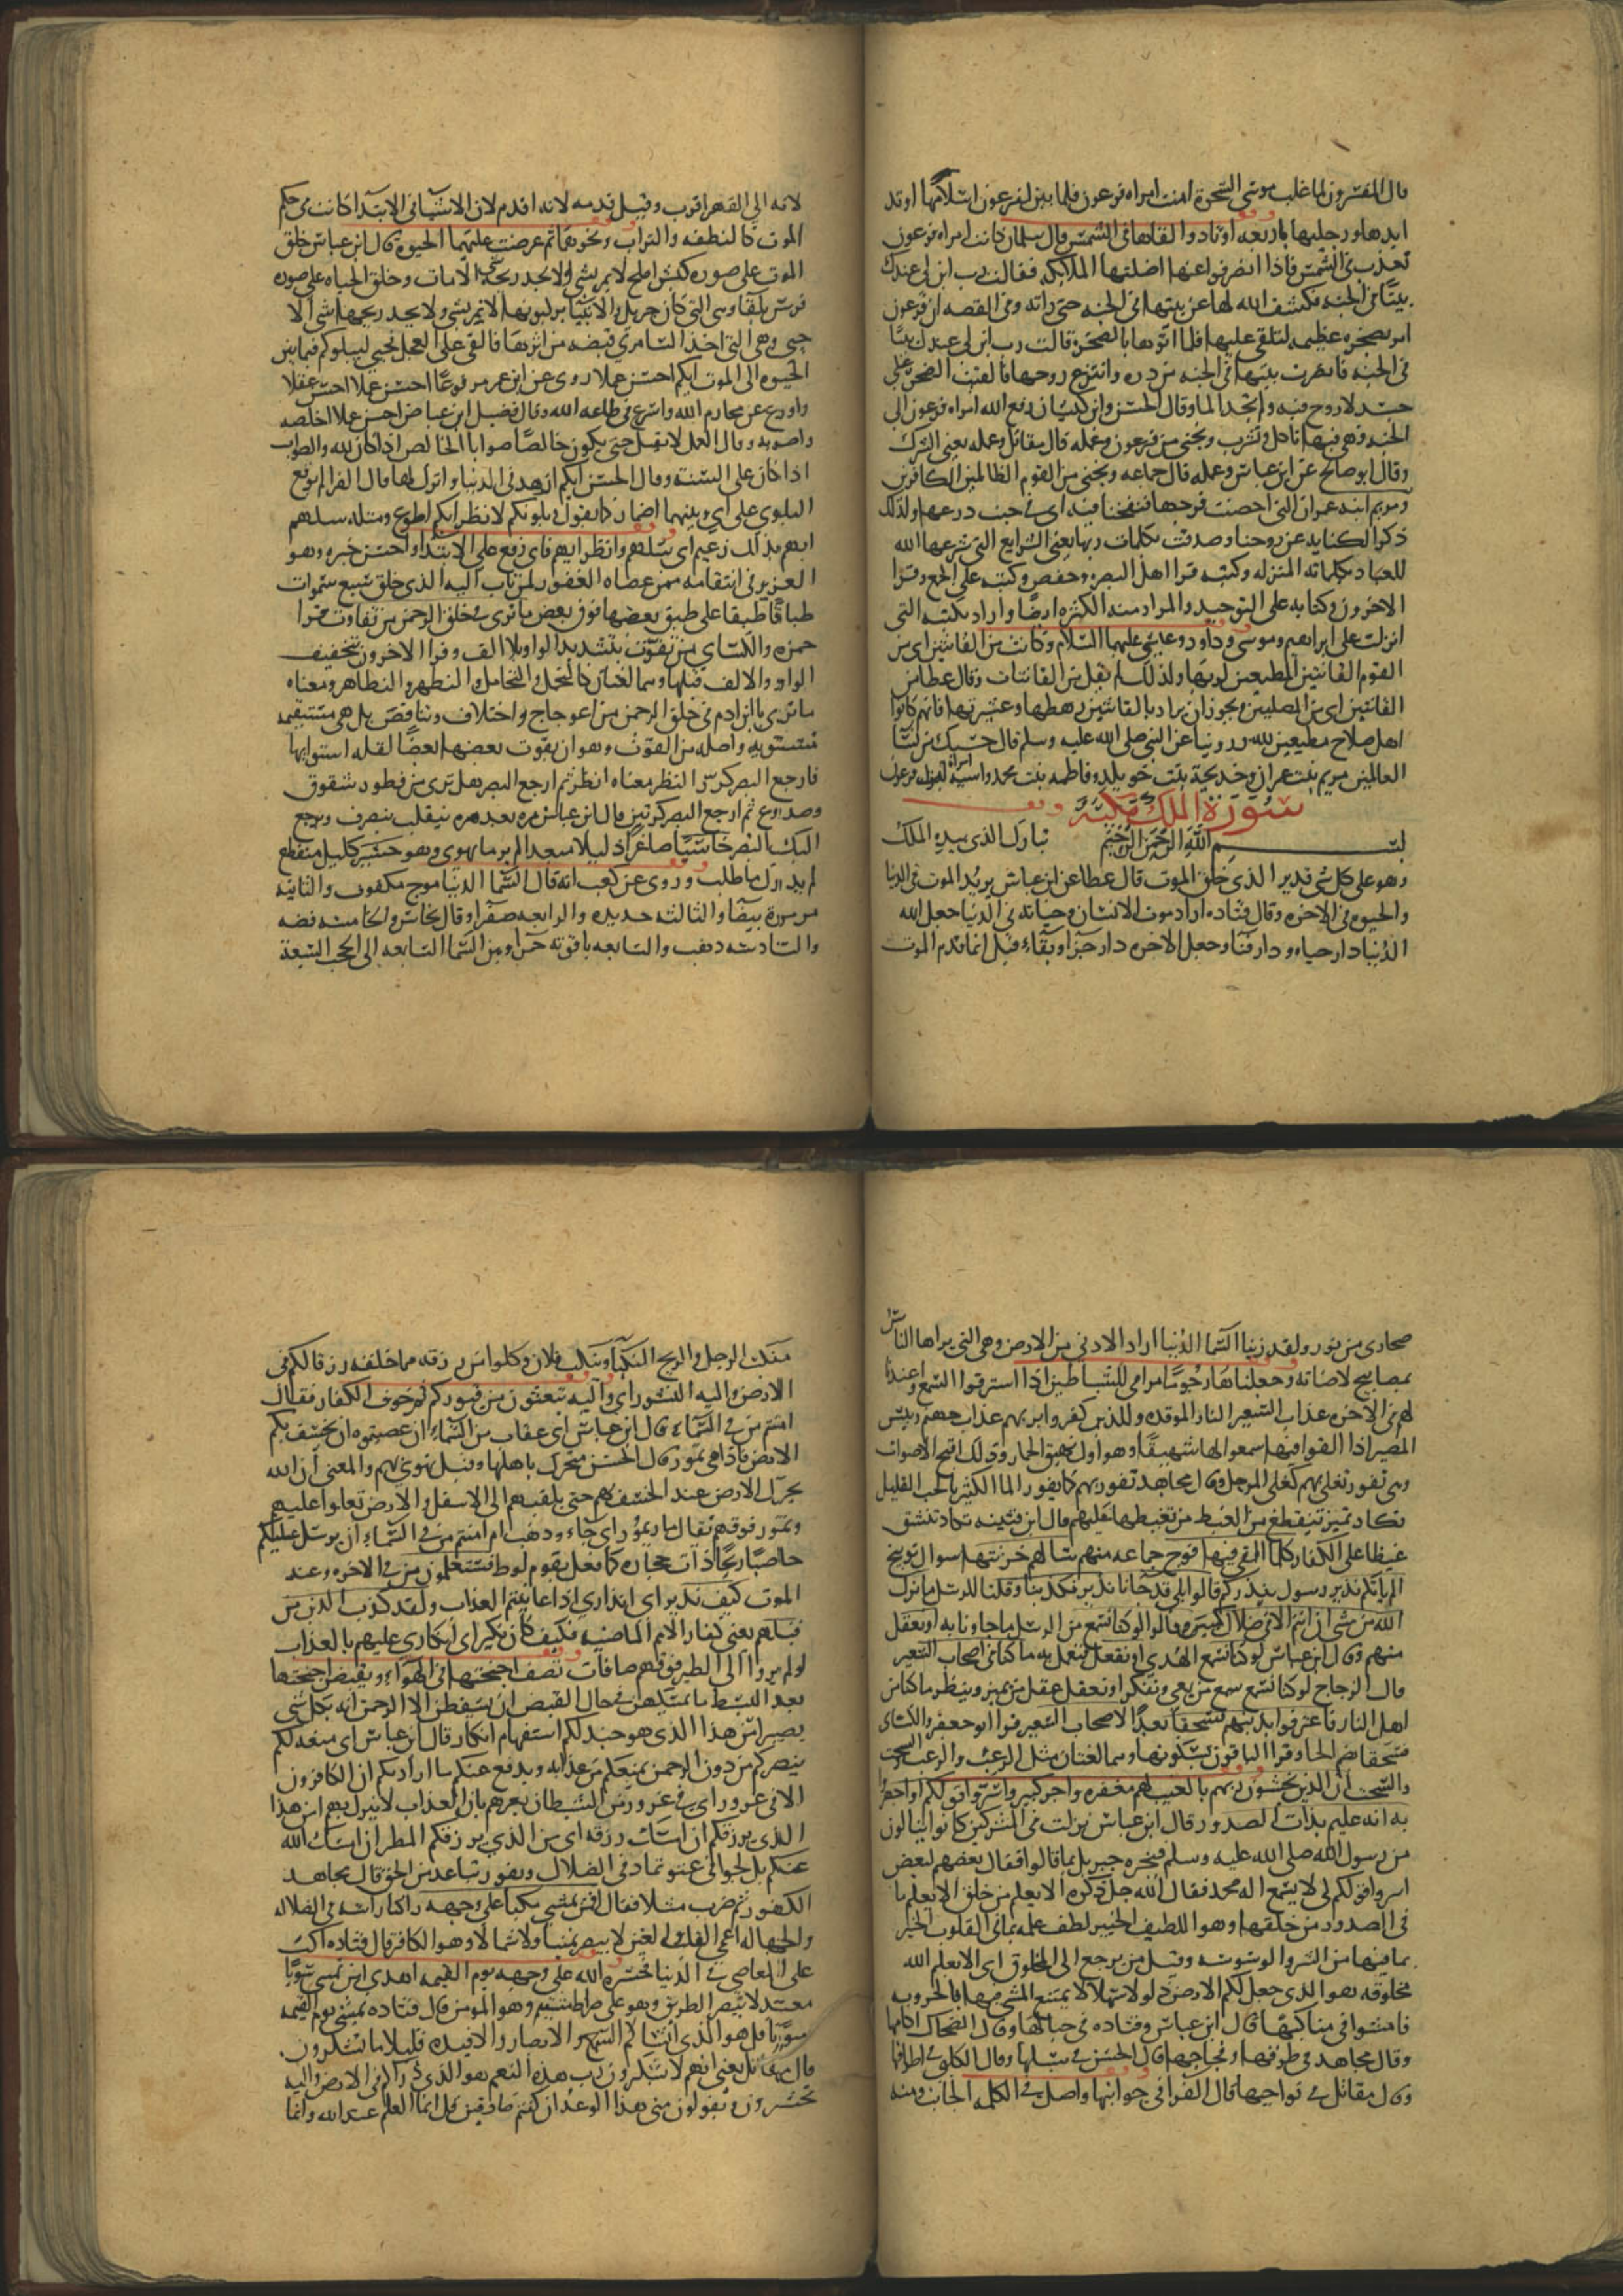 قال المفسرون لما غلب موسى السحرة امنت امراه فرعون فلما بين لفرعون اسلامها اوتد
ايديها ورجليها باربعه اوتاد والقاها في الشمس قال سلمان كانت امراه فرعون
تعذب في الشمس فاذا انصرفوا عنها اضلتها الملايكه فقالت رب ابن لي عندك
بيتا في الجنه فكشف الله لها عن بيتها في الجنه حتى راته وفي القصه ان فرعون
امر بصخره عظيمه لتلقى عليها فلما اتوها بالصخره قالت رب ابن لي عندك بيتا
في الجنه فابصرت بيتها في الجنه من دره وانتزع روحها فالقيت الصخره على
جسد لا روح فيه ولم تجد الما وقال الحسن وابن كيسان رفع الله امراه فرعون الى
الجنه فهي فيها تاكل وتشرب ونجني من فرعون وعمله قال مقاتل وعمله يعني الشرك
وقال ابو صالح عن ابن عباس وعمله قال جماعه ونجني من القوم الظالمين الكافرين
ومريم ابنه عمران التي احصنت فرجها فنفخنا فيه اي في جيب درعها ولذلك
ذكر الكنايه عن روحنا وصدقت بكلمات ربها يعني الشرايع التي شرعها الله
للعباد بكلماته المنزله وكتبه قرا اهل البصره وحفص وكتبه على الجمع وقرا
الاخرون وكتابه على التوحيد والمراد منه الكثره ايضا واراد بكتبه التي
انزلت على ابراهيم وموسى وداود وعيسى عليهم السلام وكانت من القانتين اي من
القوم القانتين المطيعين لربها ولذلك لم يقل من القانتات وقال عطا من
القانتين اي من المصلين ويجوز ان يراد بالقانتين رهطها وعشيرتها فانهم كانوا
اهل صلاح مطيعين لله وروينا عن النبي صلى الله عليه وسلم قال حسبك من نسا
العالمين مريم بنت عمران وخديجة بنت خويلد وفاطمه بنت محمد واسية امراة فرعون
سورة الملك مكية
بسم الله الرحمن الرحيم تبارك الذي بيده الملك
وهو على كل شي قدير الذي خلق الموت قال عطا عن ابن عباس يريد الموت في الدنيا
والحيوه في الاخره وقال قتاده اراد موت الانسان وحياته في الدنيا جعل الله
الدنيا دار حياه ودار فنا وجعل الاخره دار جزا وبقاء قيل انما قدم الموت
لانه الى القهر اقرب وقيل قدمه لانه اقدم لان الاشيا في الابتدا كانت في حكم
الموت كالنطفه والتراب ونحوهما ثم عرضت عليها الحيوة قال ابن عباس خلق
الموت على صوره كبش املح لا يمر بشي ولا يجد ريحه شي الا مات وخلق الحياه على صوره
فرس بلقا وهي التي كان جبريل والانبيا يركبونها لا تمر بشي ولا يجد ريحها شي الا
حيي وهي التي اخذ السامري قبضه من اثرها فالقى على العجل فحيي ليبلوكم فيما بين
الحيوه الى الموت ايكم احسن عملا روى عن ابن عمر مرفوعا احسن عملا احسن عقلا
واورع عن محارم الله واسرع في طاعه الله وقال فضيل ابن عياض احسن عملا اخلصه
واصوبه وقال العمل لا يقبل حتى يكون خالصا صوابا الخالص اذا كان لله والصواب
اذا كان على السنة وقال الحسن ايكم ازهد في الدنيا واترك لها قال الفرا لم يوقع
البلوى على اي وبينهما اضمار كما يقول بلوتكم لانظر ايكم اطوع ومثله سلهم
ايهم بذلك زعيم اي سلهم وانظر ايهم فاي رفع على الابتدا واحسن خبره وهو
العزيز في انتقامه ممن عصاه الغفور لمن تاب اليه الذي خلق سبع سموات
طباقا طبقا على طبق بعضها فوق بعض ما ترى في خلق الرحمن من تفاوت قرا
حمزه والكساي من تفوت بتشديد الواو بلا الف وقرا الاخرون بتخفيف
الواو والالف قبلها وهما لغتان كالتحمل والتحامل والتطهر والتطاهر ومعناه
ما ترى يا ابن ادم في خلق الرحمن من اعوجاج واختلاف وتناقض بل هي مستقيمه
مستويه واصله من الفوت وهو ان يفوت بعضها بعضا لقله استوايها
فارجع البصر كرر النظر معناه انظر ثم ارجع البصر هل ترى من فطور شقوق
وصدوع ثم ارجع البصر كرتين قال ابن عباس مره بعد مره ينقلب ينصرف ويرجع
اليك البصر خاسيا صاغرا ذليلا مبعدا لم ير ما يهوى وهو حسير كليل منقطع
لم يدرك ما طلب وروى عن كعب انه قال السما الدنيا موج مكفوف والثانيه
مرمرة بيضا والثالثه حديد والرابعه صفر وقال نحاس والخامسه فضه
والسادسه ذهب والسابعه ياقوته حمرا ومن السما السابعه الى الحجب السبعة
صحارى من نور ولقد زينا السما الدنيا اراد الادنى من الارض وهي التي يراها الناس
بمصابيح لاضاته وجعلناها رجوما مرامي للشياطين اذا استرقوا السمع واعتدنا
لهم في الاخره عذاب السعير النار الموقده وللذين كفروا بربهم عذاب جهنم وبيس
المصير اذا القوا فيها سمعوا لها شهيقا وهو اول نهيق الحمار وذلك اقبح الاصوات
وهي تفور تغلي بهم كغلي المرجل وقال مجاهد تفور بهم كما يفور الما الكثير بالحب القليل
تكاد تميز تتقطع من الغيظ من تغيظها عليهم قال ابن قتيبه تكاد تنشق
غيظا على الكفار كلما القي فيها فوج جماعه منهم سالهم خزنتها سوال توبيخ
الم ياتكم نذير رسول ينذركم قالوا بلى قد جانا نذير فكذبنا وقلنا للرسل ما نزل
الله من شي ان انتم الا في ضلال كبير وقالوا لو كنا نسمع من الرسل ما جاونا به او نعقل
منهم وقال ابن عباس لو كنا نسمع الهدى او نعقل فنعمل به ما كنا في اصحاب السعير
قال الزجاج لو كنا نسمع سمع من يعي ونتفكر او نعقل عقل من يميز وينظر ما كنا من
اهل النار فاعترفوا بذنبهم فسحقا بعدا لاصحاب السعير قرا ابو جعفر والكساي
فسحقا بضم الحا وقرا الباقون بسكونها وهما لغتان مثل الرعب والرعب والسحت
والسحت ان الذين يخشون ربهم بالغيب لهم مغفره واجر كبير واسروا قولكم او اجهروا
به انه عليم بذات الصدور قال ابن عباس نزلت في المشركين كانوا ينالون
من رسول الله صلى الله عليه وسلم فيخبره جبريل بما قالوا فقال بعضهم لبعض
اسروا قولكم كي لا يسمع اله محمد فقال الله جل ذكره الا يعلم من خلق الا يعلم ما
في الصدور من خلقها وهو اللطيف الخبير لطف علمه بما في القلوب الخبير
بما فيها من السر والوسوسه وقيل من يرجع الى المخلوق اي الا يعلم الله
مخلوقه هو الذي جعل لكم الارض ذلولا سهلا لا يمتنع المشي فيها بالحزونه
فامشوا في مناكبها قال ابن عباس وقتاده في جبالها وقال الضحاك اكامها
وقال مجاهد في طرقها وفجاجها قال الحسن في سبلها وقال الكلبي في اطرافها
وقال مقاتل في نواحيها قال الفرا في جوانبها واصل في الكلمه الجانب ومنه
منكب الرجل والريح النكبا وتنكب فلان وكلوا من رزقه مما خلقه رزقا لكم في
الارض واليه النشور اي واليه تبعثون من قبوركم ثم خوف الكفار فقال
امنتم من في السماء قال ابن عباس اي عقاب من في السماء ان عصيتموه ان يخسف بكم
الارض فاذا هي تمور قال الحسن تتحرك باهلها وقيل تهوي بهم والمعنى ان الله
يحرك الارض عند الخسف بهم حتى يلقيهم الى الاسفل والارض تعلوا عليهم
وتمور فوقهم يقال مار يمور اي جاء وذهب ام امنتم من في السماء ان يرسل عليكم
حاصبا ريحا ذات حجاره كما فعل بقوم لوط فستعلمون في الاخره وعند
الموت كيف نذير اي انذاري اذا عاينتم العذاب ولقد كذب الذين من
قبلهم يعني كفار الامم الماضيه فكيف كان نكير اي انكاري عليهم بالعذاب
اولم يروا الى الطير فوقهم صافات تصف اجنحتها في الهواء ويقبضن اجنحتها
بعد البسط ما يمسكهن في حال القبض ان يسقطن الا الرحمن انه بكل شي
بصير امن هذا الذي هو جند لكم استفهام انكار قال ابن عباس اي منعه لكم
ينصركم من دون الرحمن يمنعكم من عذابه ويدفع عنكم ما اراد بكم ان الكافرون
الا في غرور اي في غرور من الشيطان يغرهم بان العذاب لا ينزل بهم امن هذا
الذي يرزقكم ان امسك رزقه اي من الذي يرزقكم المطر ان امسك الله
عنكم بل لجوا في عتو تماد في الضلال ونفور تباعد من الحق قال مجاهد
الكفور ثم ضرب مثلا فقال افمن يمشي مكبا على وجهه راكبا راسه في الضلاله
والجهاله اعمى القلب والعين لا يبصر يمينا ولا شمالا وهو الكافر قال قتاده اكب
على المعاصي في الدنيا فحشره الله على وجهه يوم القيمه اهدى امن يمشي سويا
معتدلا يبصر الطريق وهو على صراط مستقيم وهو المومن قال قتاده يمشي يوم القيمه
سويا قل هو الذي انشا لكم السمع والابصار والافيده قليلا ما تشكرون
قال مقاتل يعني انهم لا يشكرون رب هذه النعم هو الذي ذراكم في الارض واليه
تحشرون ويقولون متى هذا الوعد ان كنتم صادقين قل انما العلم عند الله وانما